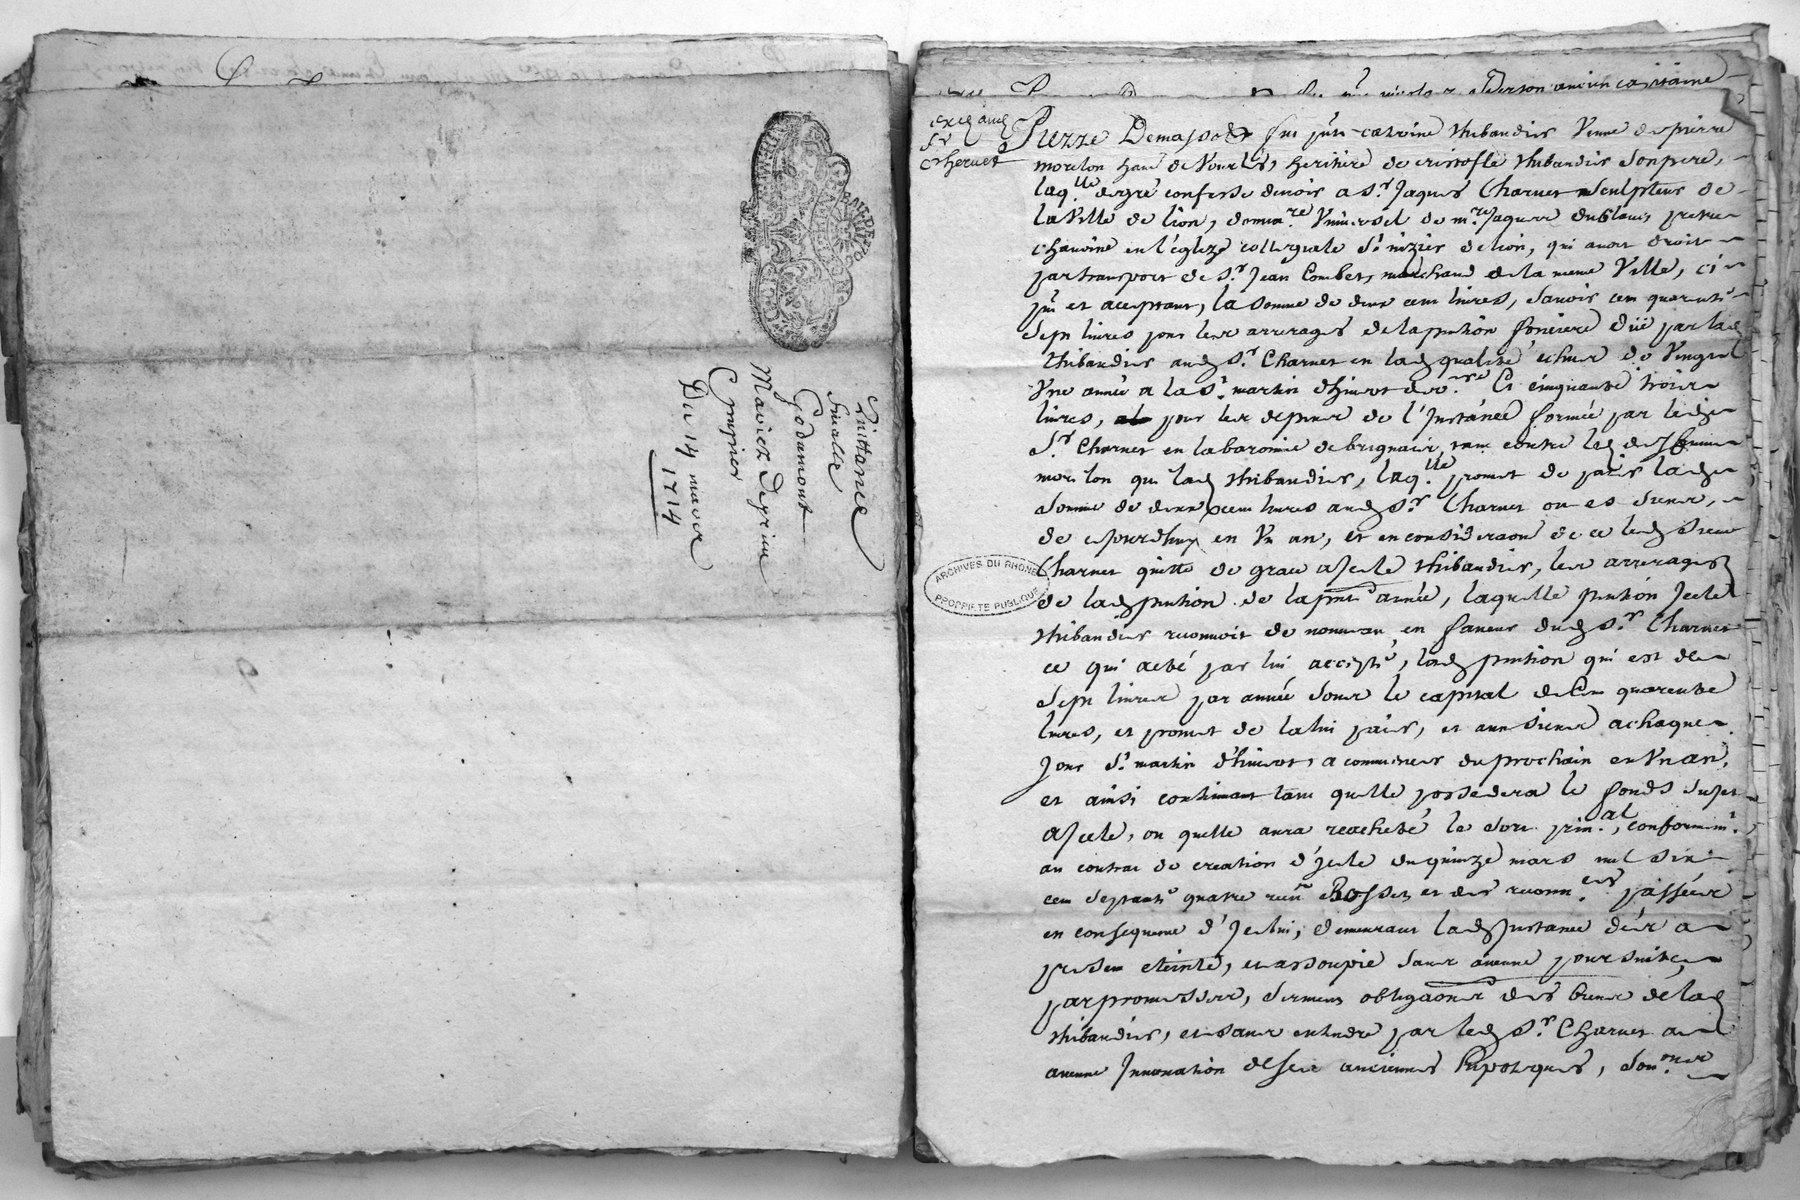 Quittance
Godemont
Maviez
Du 14 mars
1714
ARCHIVES DU RHONE
PROPRIETE PUBLIQUE
ancien capitaine
exp. aud
Sr
Charnet
Thibaudier Veuve de pierre
morelon hant de Vourles, heritiere de cristofle thibaudier son pere,
laq.lle de gré confesse devoir a Sr Jaques Charnet sculpteur de
la Ville de lion, heritier Universel de mre Jaques prestre
chanoine en l'eglize collegiale St nizier de lion, qui avoit droit
par transport de Sr Jean Combet, marchand de la meme Ville, ci
pnt et aceptant, la somme de deux cent livres, savoir cent quarente
sept livres pour les arrerages de la pention fonciere düe par lad
thibaudier aud Sr Charnet en lad qualité echus de Vingt
Une année a la St martin d'hivert Et cinquante trois
livres, pour les depens de l'Instance formée par led
Sr Charnet en la baronnie de brignais, tant contre led
morelon que lad thibaudier, laq.lle promet de paier lad
somme de deux cent livres aud Sr Charnet ou es siens,
de aujourdhuy en Un an, et en consideraon de ce led Sieur
Charnet quitte de grace a Jcele thibaudier, les arrerages
de lad pention de la pnte année, laquelle pention Jcele
thibaudier reconnoit de nouveau en faveur dud Sr Charnet
ce qui a eté par lui accepté, lad pention qui est de
sept livres par année sous le capital de Cent quarente
livres, et promet de la lui paier, et aux siens a chaque
Jour St martin d'hivert, a commencer du prochain en Un an,
et ainsi continuant tant quelle possedera le fonds sujet
a Jcele, ou quelle aura racheté le sort prin.al, conformem.t
au contrat de creation d'Jcele du quinze mars mil six
cent septante quatre receu Bosset et des reconn.ces passées
en consequence d'Jcelui, demeurant lad Instance des a
present eteinte, et assoupie sans aucune poursuite,
par promesses, serment obligaons des biens de lad
thibaudier, et sans entendre par led Sr Charnet a
aucune Innovation de ses anciennes hipoteques,